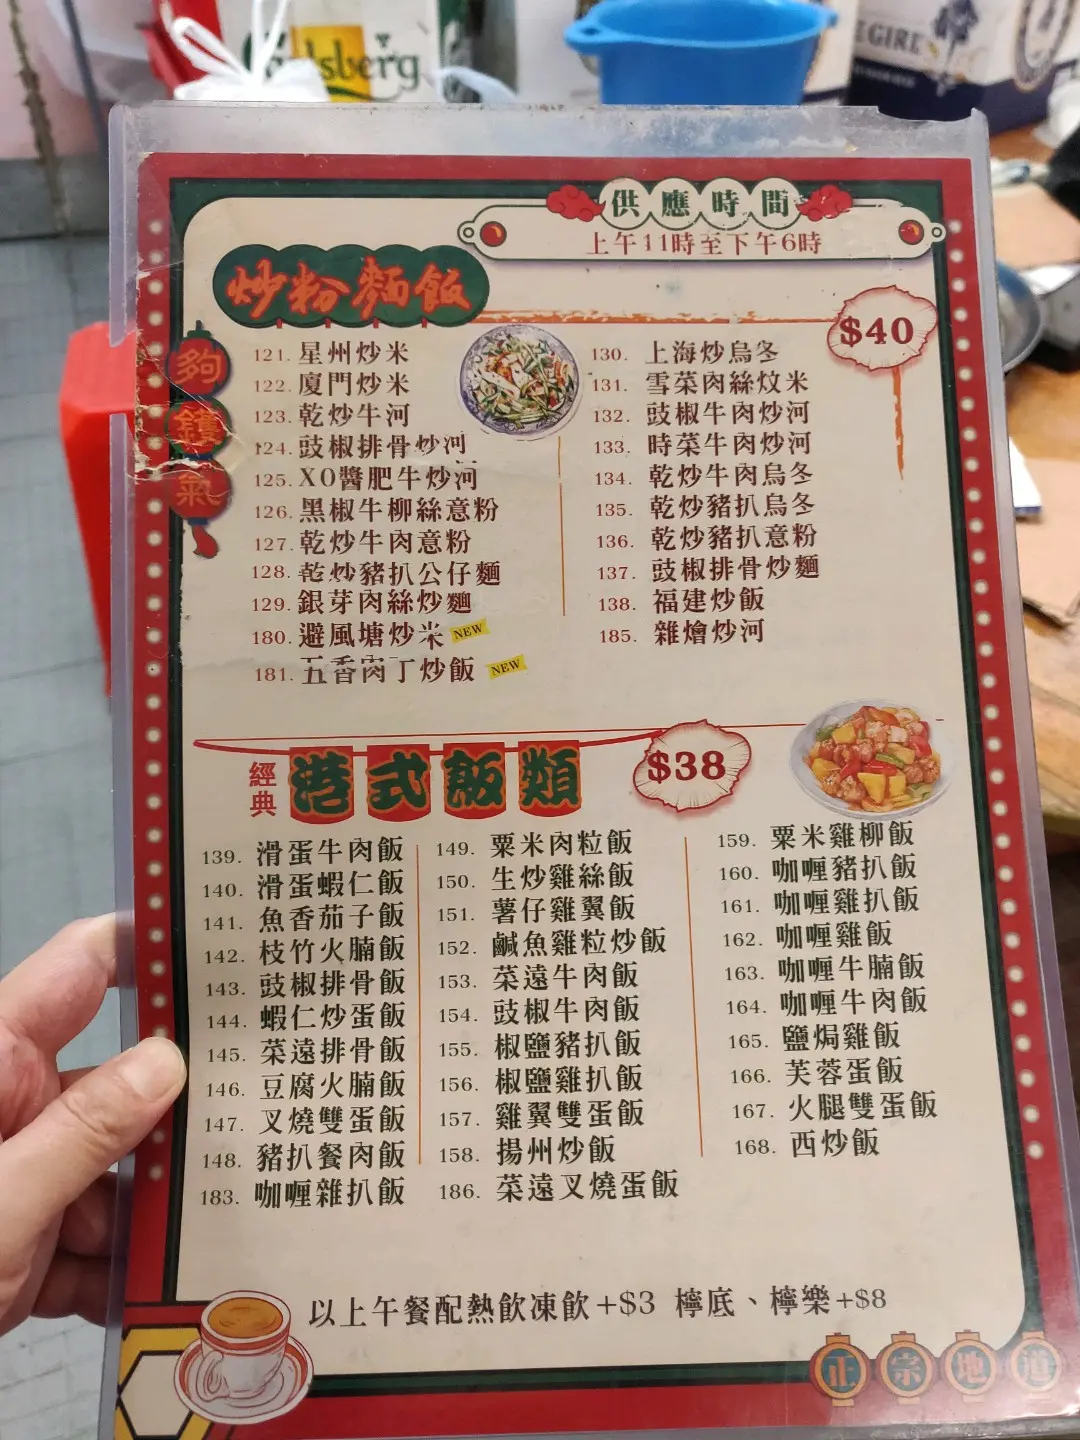 Carlsberg
GIRL
供應時間
上午11時至下午6時
炒粉麵飯
夠鑊氣
$40
121. 星州炒米
122. 廈門炒米
123. 乾炒牛河
124. 豉椒排骨炒河
125. XO醬肥牛炒河
126. 黑椒牛柳絲意粉
127. 乾炒牛肉意粉
128. 乾炒豬扒公仔麵
129. 銀芽肉絲炒麵
180. 避風塘炒米 NEW
181. 五香肉丁炒飯 NEW
130. 上海炒烏冬
131. 雪菜肉絲炆米
132. 豉椒牛肉炒河
133. 時菜牛肉炒河
134. 乾炒牛肉烏冬
135. 乾炒豬扒烏冬
136. 乾炒豬扒意粉
137. 豉椒排骨炒麵
138. 福建炒飯
185. 雜燴炒河
經典
港式飯類
$38
139. 滑蛋牛肉飯
140. 滑蛋蝦仁飯
141. 魚香茄子飯
142. 枝竹火腩飯
143. 豉椒排骨飯
144. 蝦仁炒蛋飯
145. 菜遠排骨飯
146. 豆腐火腩飯
147. 叉燒雙蛋飯
148. 豬扒餐肉飯
183. 咖喱雜扒飯
149. 粟米肉粒飯
150. 生炒雞絲飯
151. 薯仔雞翼飯
152. 鹹魚雞粒炒飯
153. 菜遠牛肉飯
154. 豉椒牛肉飯
155. 椒鹽豬扒飯
156. 椒鹽雞扒飯
157. 雞翼雙蛋飯
158. 揚州炒飯
186. 菜遠叉燒蛋飯
159. 粟米雞柳飯
160. 咖喱豬扒飯
161. 咖喱雞扒飯
162. 咖喱雞飯
163. 咖喱牛腩飯
164. 咖喱牛肉飯
165. 鹽焗雞飯
166. 芙蓉蛋飯
167. 火腿雙蛋飯
168. 西炒飯
以上午餐配熱飲凍飲+$3 檸底、檸樂+$8
正宗地道